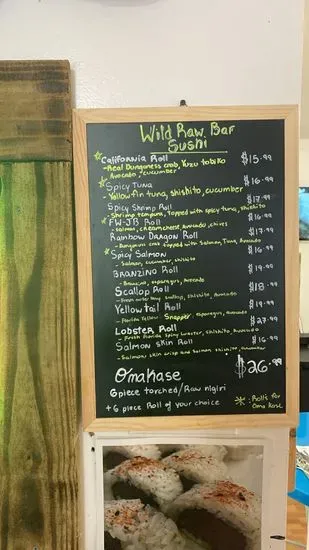 Wild Raw Bar
Sushi
California Roll $15.99
- Real Dungeness crab, Yuzu tobiko
Avocado, cucumber
Spicy Tuna $16.99
- Yellowfin tuna, shishito, cucumber
Spicy Shrimp Roll $17.99
- Shrimp tempura, topped with spicy tuna, shishito
FW-JB Roll $16.99
- Salmon, cream cheese, avocado, chives
Rainbow Dragon Roll $17.99
- Dungeness crab topped with Salmon, Tuna, Avocado
Spicy Salmon $16.99
- Salmon, cucumber, shishito
Branzino Roll $19.99
- Branzino, asparagus, avocado
Scallop Roll $18.99
- Fresh scallop, shishito, avocado
Yellow tail Roll $19.99
- Florida Yellow Snapper, asparagus, avocado
Lobster Roll $23.99
- Fresh Florida Spiny lobster, shishito, avocado
Salmon Skin Roll $16.99
- Salmon skin crisp and salmon, shishito, cucumber
Omakase $26.99
6 piece torched/Raw nigiri
+ 6 piece Roll of your choice
* : Rolls for
Oma kase